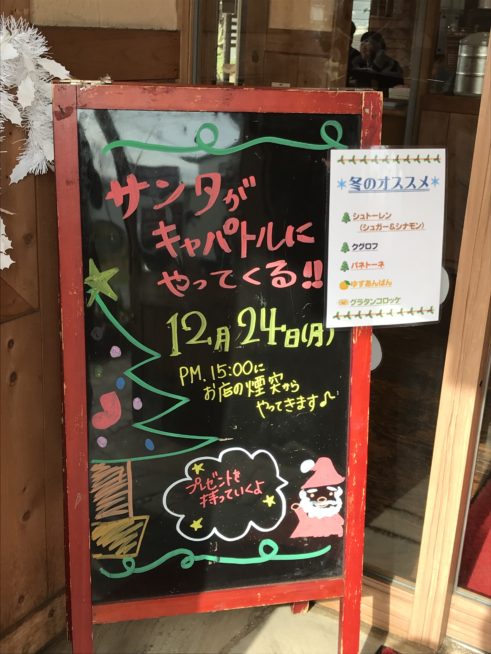 サンタが
キャパトルに
やってくる!!
12月24日(月)
PM.15:00に
お店の煙突から
やってきます♪
プレゼントを
持っていくよ
*冬のオススメ*
シュトーレン
(シュガー&シナモン)
クグロフ
パネトーネ
ゆずあんぱん
グラタンコロッケ